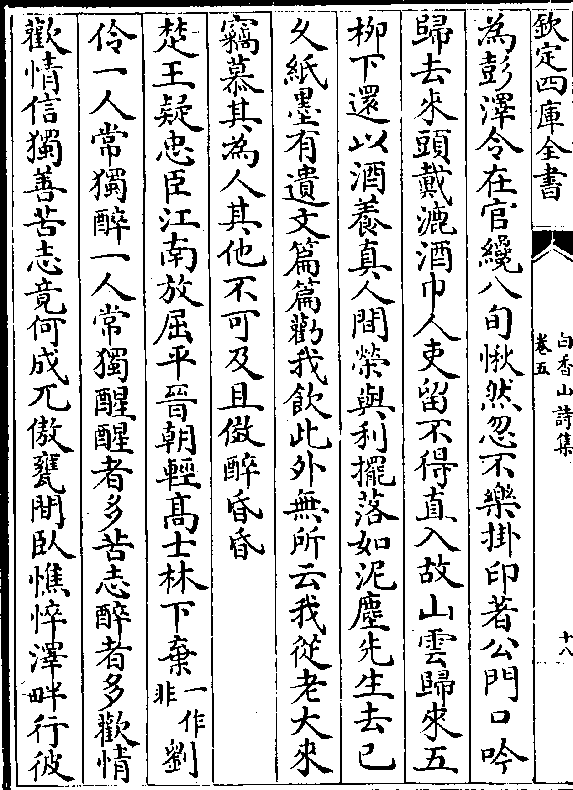 欽定四庫全書
白香山詩集
卷五
十八
為彭澤令在官纔八旬愀然忽不樂掛印著公門口吟
歸去來頭戴漉酒巾人吏留不得直入故山雲歸來五
柳下還以酒養真人間榮與利擺落如泥塵先生去已
乆紙墨有遺文篇篇勸我飲此外無所云我從老大來
竊慕其為人其他不可及且傚醉昏昏
楚王疑忠臣江南放屈平晉朝輕髙士林下棄一作非劉
伶一人常獨醉一人常獨醒醒者多苦志醉者多歡情
歡情信獨善苦志竟何成兀傲甕間臥憔悴澤畔行彼